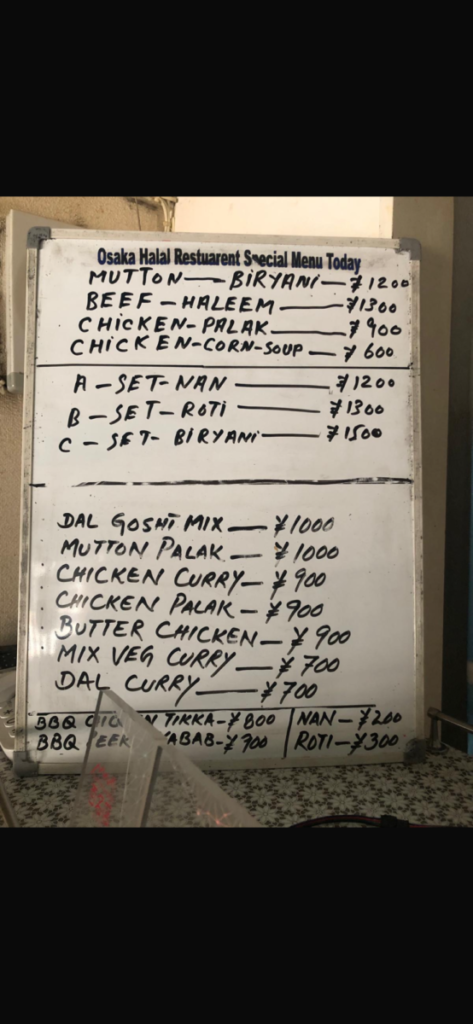 Osaka Halal Restuarent Special Menu Today
MUTTON — BIRYANI — ¥1200
BEEF – HALEEM — ¥1300
CHICKEN – PALAK — ¥900
CHICKEN-CORN-SOUP — ¥600
A – SET-NAN — ¥1200
B – SET – ROTI — ¥1300
C – SET- BIRYANI — ¥1500
DAL GOSHT MIX — ¥1000
MUTTON PALAK — ¥1000
CHICKEN CURRY — ¥900
CHICKEN PALAK — ¥900
BUTTER CHICKEN — ¥900
MIX VEG CURRY — ¥700
DAL CURRY — ¥700
BBQ TIKKA-¥800 | NAN – ¥200
BBQ -¥900 | ROTI – ¥300